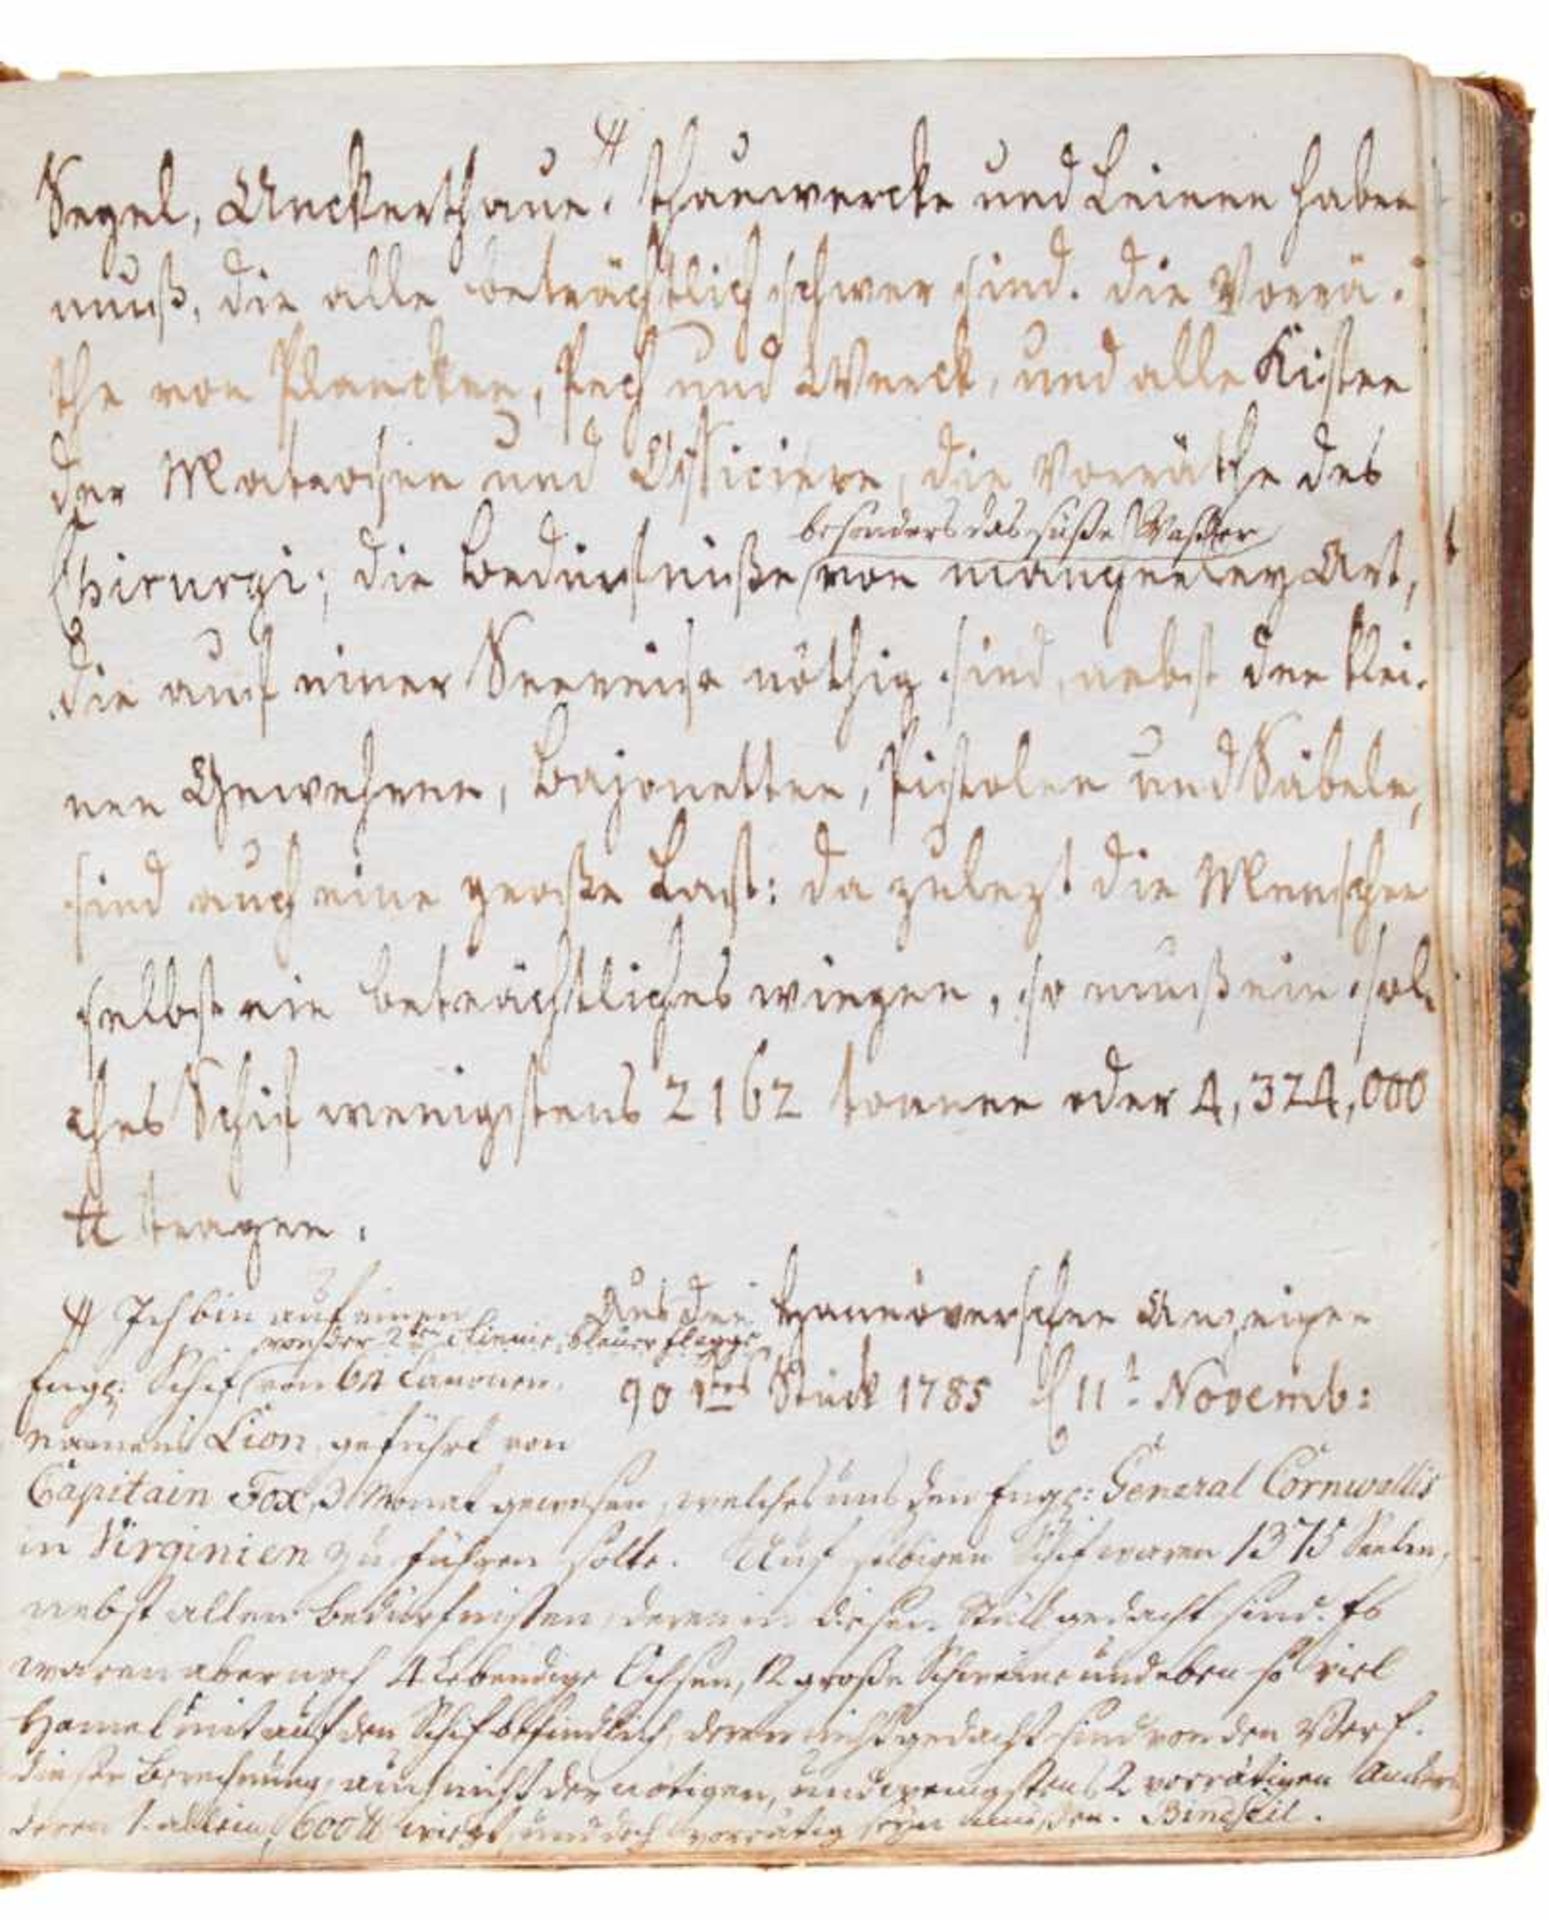 Segel, Anckerthaue, # thauwercke und Leinen haben
muß, die alle beträchtlich schwer sind. die Vorrä-
the von Plancken, Pech und Werck, und alle Kisten
der Matrosen und Officiere, die Vorräthe des
besonders das süße Wasser
Chirurgi; die Bedürfniße von mancherley Art,
die auf einer Seereise nöthig sind, nebst den klei-
nen Gewehren, Bajonetten, Pistolen und Säbeln,
sind auch eine große Last: da zulezt die Menschen
selbst ein beträchtliches wiegen, so muß ein sol-
ches Schif wenigstens 2162 tonnen oder 4,324,000
℔ tragen.
Aus den Hannöverschen Anzeigen
90stes Stück 1785 d 11t Novemb:
# Ich bin auf einen
von der 2ten Linie, blauer flagge
Engl: Schif von 64 Canonen,
namens Lion, geführt von
Capitain Fox, 3 Monat gewesen, welches uns den Engl: General Cornwallis
in Virginien zu führen solte. Auf selbigen Schif waren 1375 Seelen,
nebst allen Bedürfnissen, deren in diesen Stück gedacht sind. Es
waren aber noch 4 lebendige Ochsen, 12 große Schweine und eben so viel
Hamel mit auf den Schif befindlich, deren nicht gedacht sind von den Verf.
dieser Berechnung, auch nicht der nötigen, und wenigstens 2 vorrätigen Ancker
deren 1 allein 600 ℔ wiegt, und doch vorrätig seyn müssen. Bindseil.